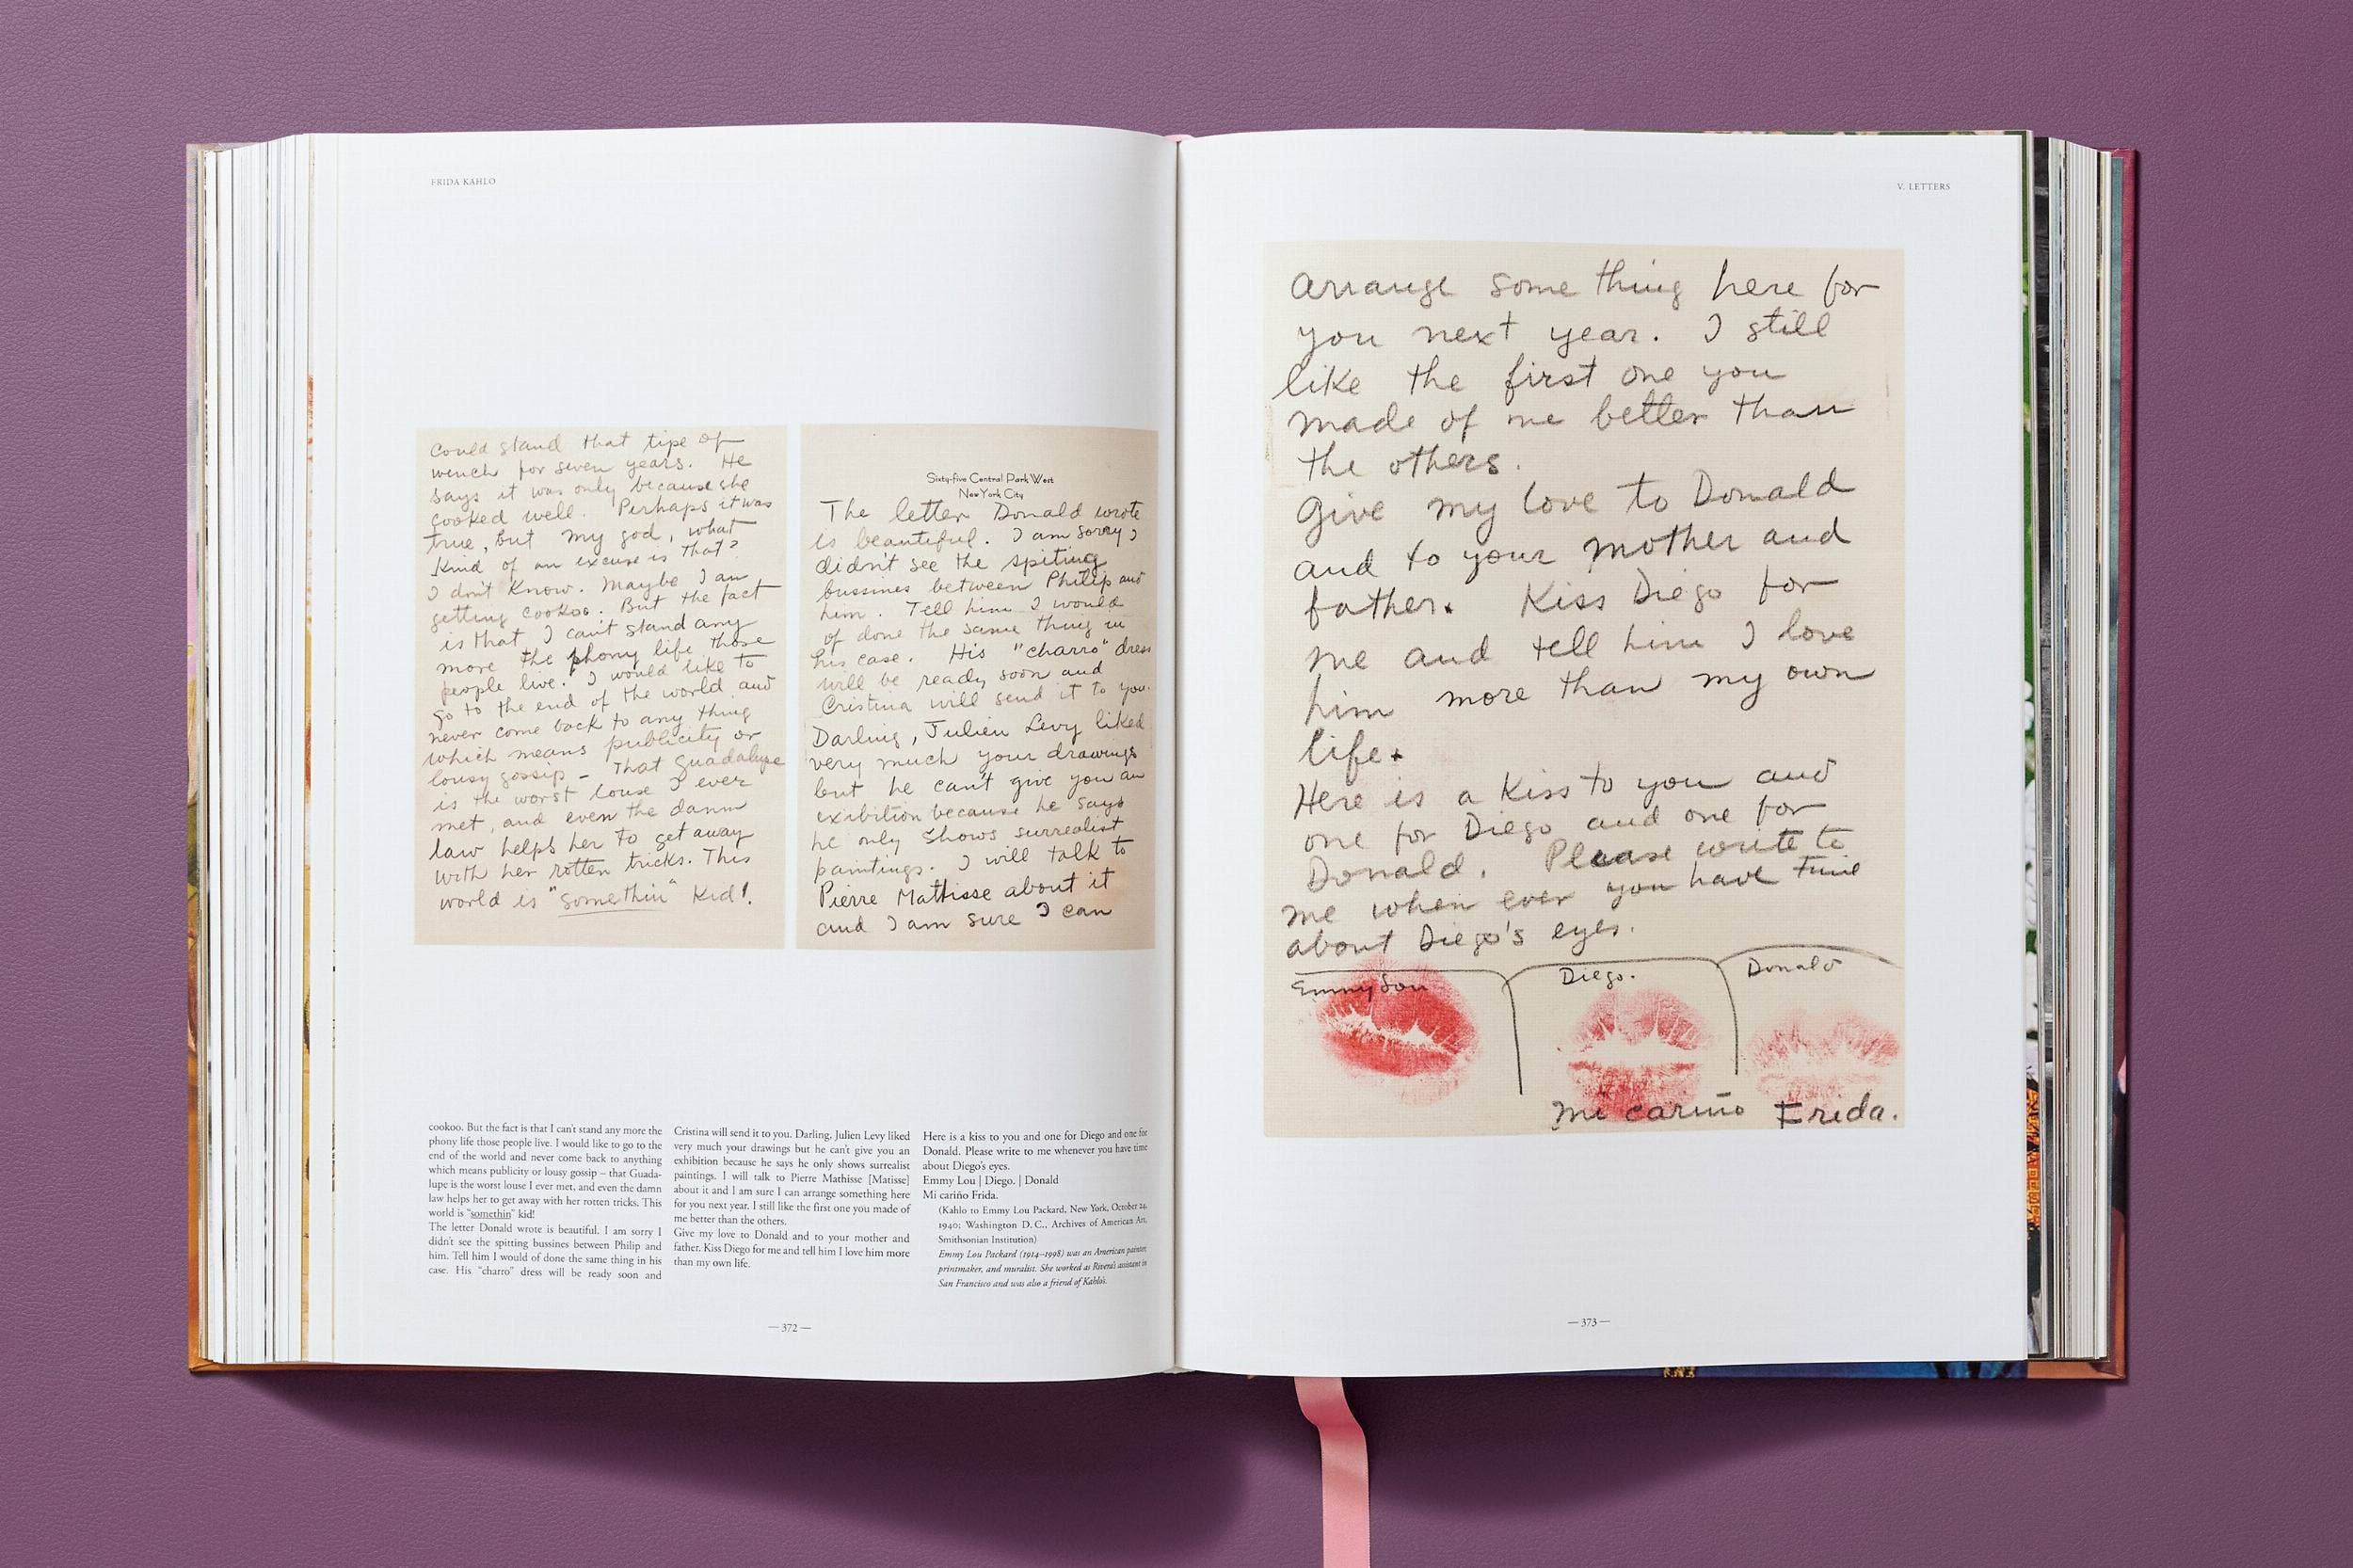 FRIDA KAHLO
could stand that tipe of
wench for seven years. He
says it was only because she
cooked well. Perhaps it was
true, but my god, what
kind of an excuse is that?
I don't know. Maybe I am
getting cookoo. But the fact
is that I can't stand any
more the phony life those
people live. I would like to
go to the end of the world and
never come back to any thing
which means publicity or
lousy gossip – That Guadalupe
is the worst louse I ever
met, and even the damn
law helps her to get away
with her rotten tricks. This
world is "somethin" Kid!
Sixty-five Central Park West
New York City
The letter Donald wrote
is beautiful. I am sorry I
didn't see the spiting
bussines between Philip and
him. Tell him I would
of done the same thing in
his case. His "charro" dress
will be ready soon and
Cristina will send it to you.
Darling, Julien Levy liked
very much your drawings
but he can't give you an
exibition because he says
he only shows surrealist
paintings. I will talk to
Pierre Mathisse about it
and I am sure I can
cookoo. But the fact is that I can't stand any more the
phony life those people live. I would like to go to the
end of the world and never come back to anything
which means publicity or lousy gossip – that Guada-
lupe is the worst louse I ever met, and even the damn
law helps her to get away with her rotten tricks. This
world is "somethin" kid!
The letter Donald wrote is beautiful. I am sorry I
didn't see the spitting bussines between Philip and
him. Tell him I would of done the same thing in his
case. His "charro" dress will be ready soon and
Cristina will send it to you. Darling, Julien Levy liked
very much your drawings but he can't give you an
exhibition because he says he only shows surrealist
paintings. I will talk to Pierre Mathisse [Matisse]
about it and I am sure I can arrange something here
for you next year. I still like the first one you made of
me better than the others.
Give my love to Donald and to your mother and
father. Kiss Diego for me and tell him I love him more
than my own life.
Here is a kiss to you and one for Diego and one for
Donald. Please write to me whenever you have time
about Diego's eyes.
Emmy Lou | Diego. | Donald
Mi cariño Frida.
(Kahlo to Emmy Lou Packard, New York, October 24,
1940; Washington D. C., Archives of American Art,
Smithsonian Institution)
Emmy Lou Packard (1914–1998) was an American painter,
printmaker, and muralist. She worked as Rivera's assistant in
San Francisco and was also a friend of Kahlo's.
— 372 —
V. LETTERS
arrange some thing here for
you next year. I still
like the first one you
made of me better than
the others.
Give my love to Donald
and to your mother and
father. Kiss Diego for
me and tell him I love
him more than my own
life.
Here is a Kiss to you and
one for Diego and one for
Donald. Please write to
me when ever you have time
about Diego's eyes.
Emmy Lou
Diego.
Donald
Mi cariño Frida.
— 373 —